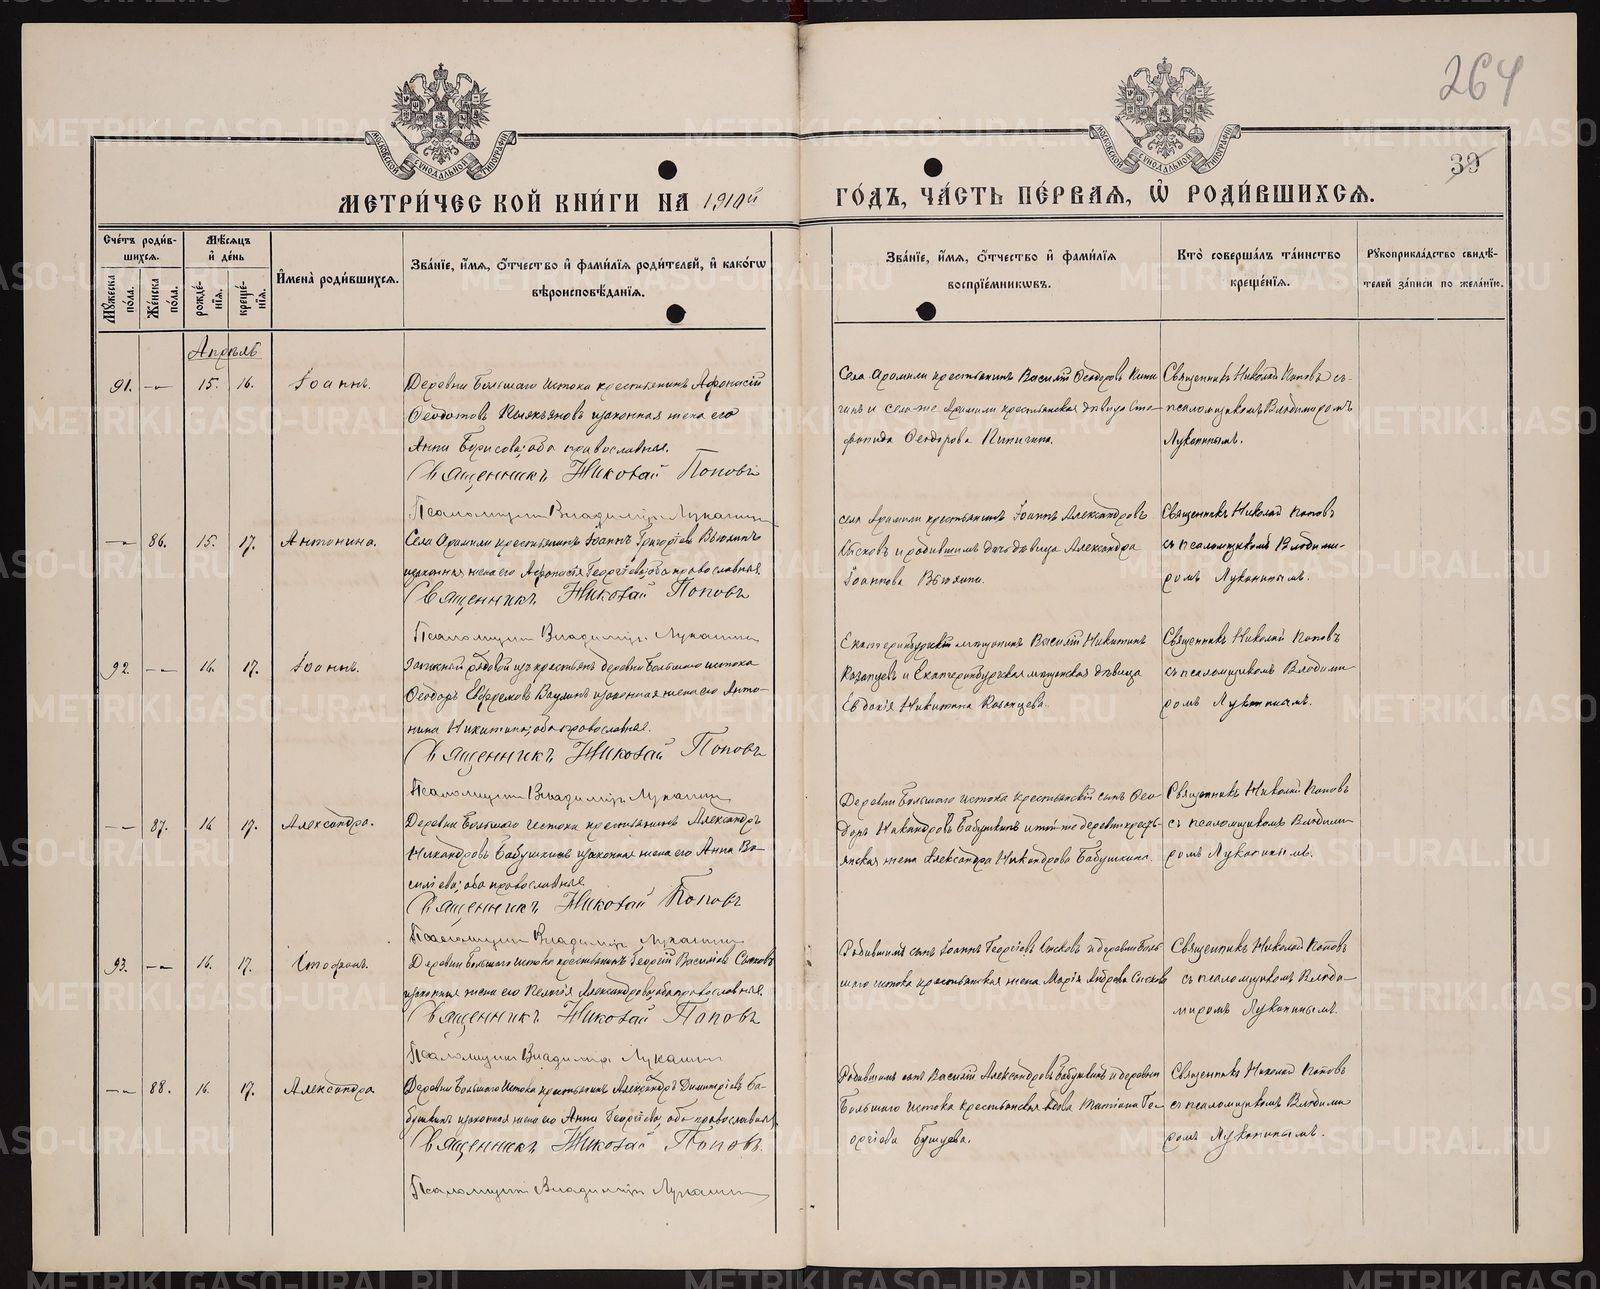 264
39
МОСКОВСКОЙ СѴНОДАЛЬНОЙ ТИПОГРАФІИ
МОСКОВСКОЙ СѴНОДАЛЬНОЙ ТИПОГРАФІИ
МЕТРИ́ЧЕСКОЙ КНИ́ГИ НА 1910й ГО́ДЪ, ЧА́СТЬ ПЕ́РВАЯ, Ѡ҆ РОДИ́ВШИХСЯ.
Сче́тъ роди́в-
шихся.
Мѣ́сяцъ
и҆ де́нь
Мꙋ́жеска по́ла.
Же́нска по́ла.
рожде́-нїя.
креще́-нїя.
И҆мена̀ роди́вшихся.
Зва́нїе, и҆́мя, ѻ҆́тчество и҆ фами́лїя роди́телей, и҆ како́гѡ
вѣроисповѣ́данїя.
Зва́нїе, и҆́мя, ѻ҆́тчество и҆ фами́лїя
воспрїе́мникѡвъ.
Кто̀ соверша́лъ та́инство
креще́нїя.
Рꙋкоприкла́дство свидѣ́-
телей за́писи по жела́нїю.
Апрѣль
91. — 15. 16. Іоаннъ.
Деревни Большаго Истока крестьянинъ Афонасій
Ѳеодотовъ и законная жена его
Анна Борисова; оба православные.
Священникъ Николай Поповъ
Псаломщикъ Владиміръ Лукапинъ
Села Арамили крестьянинъ Василій Ѳеодоровъ Кипи-
гинъ и села-же Арамили крестьянская дѣвица Сте-
фанида Ѳеодорова Кипигина.
Священникъ Николай Поповъ съ
псаломщикомъ Владимиромъ
Лукапинымъ.
— 86. 15. 17. Антонина.
Села Арамили крестьянинъ Іоаннъ Григоріевъ Вьюхинъ
и законная жена его Афонасія Георгіева; оба православные.
Священникъ Николай Поповъ
Псаломщикъ Владиміръ Лукапинъ
Села Арамили крестьянинъ Іоаннъ Александровъ
Сысковъ и родившимъ дочь дѣвица Александра
Іоаннова Вьюхина.
Священникъ Николай Поповъ
съ псаломщикомъ Владими-
ромъ Лукапинымъ.
92. — 16. 17. Іоаннъ.
Запасный рядовой изъ крестьянъ деревни Большаго Истока
Ѳеодоръ Евфремовъ Ваулинъ и законная жена его Анто-
нина Никитина; оба православные.
Священникъ Николай Поповъ
Псаломщикъ Владиміръ Лукапинъ
Екатеринбургскій мѣщанинъ Василій Никитинъ
Казанцевъ и Екатеринбургская мѣщанская дѣвица
Евдокія Никитина Казанцева.
Священникъ Николай Поповъ
съ псаломщикомъ Владими-
ромъ Лукапинымъ.
— 87. 16 17. Александра.
Деревни Большаго Истока крестьянинъ Александръ
Никандровъ Бабушкинъ и законная жена его Анна Ва-
силіева; оба православные.
Священникъ Николай Поповъ
Псаломщикъ Владиміръ Лукапинъ
Деревни Большаго Истока крестьянскій сынъ Ѳео-
доръ Никандровъ Бабушкинъ и той-же деревни кресть-
янская жена Александра Никандрова Бабушкина.
Священникъ Николай Поповъ
съ псаломщикомъ Владими
ромъ Лукапинымъ.
93. — 16. 17. Стефанъ.
Деревни Большаго Истока крестьянинъ Георгій Василіевъ Сысковъ
и законная жена его Пелагія Александрова; оба православные.
Священникъ Николай Поповъ
Псаломщикъ Владиміръ Лукапинъ
Родившимъ сынъ Іоаннъ Георгіевъ Сысковъ и деревни Боль-
шаго Истока крестьянская жена Марія Сыскова
Священникъ Николай Поповъ
съ псаломщикомъ Влади-
миромъ Лукапинымъ.
— 88. 16. 17. Александра
Деревни Большаго Истока крестьянинъ Александръ Димитріевъ Ба-
бушкинъ и законная жена его Анна Георгіева; оба православные.
Священникъ Николай Поповъ.
Псаломщикъ Владиміръ Лукапинъ
Родившимъ сынъ Василій Александровъ Бабушкинъ и деревни
Большаго Истока крестьянская вдова Татіана Ге-
оргіева Бушуева.
Священникъ Николай Поповъ
съ псаломщикомъ Владими
ромъ Лукапинымъ.
METRIKI.GASO-URAL.RU